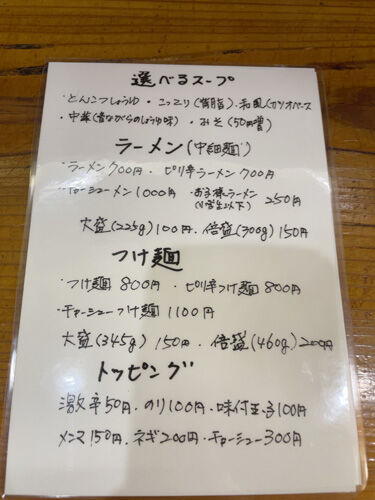 選べるスープ
・とんこつしょうゆ・こってり(背脂)・和風(カツオベース
・中華(昔ながらのしょうゆ味)・みそ(50円増)
ラーメン(中細麺)
・ラーメン700円・ピリ辛ラーメン700円
・チャーシューメン1000円・お子様ラーメン(小学生以下)250円
大盛(225g)100円、倍盛(300g)150円
つけ麺
・つけ麺800円・ピリ辛つけ麺800円
・チャーシューつけ麺1100円
大盛(345g)150円・倍盛(460g)200円
トッピング
激辛50円、のり100円、味付玉子100円
メンマ150円、ネギ200円・チャーシュー300円